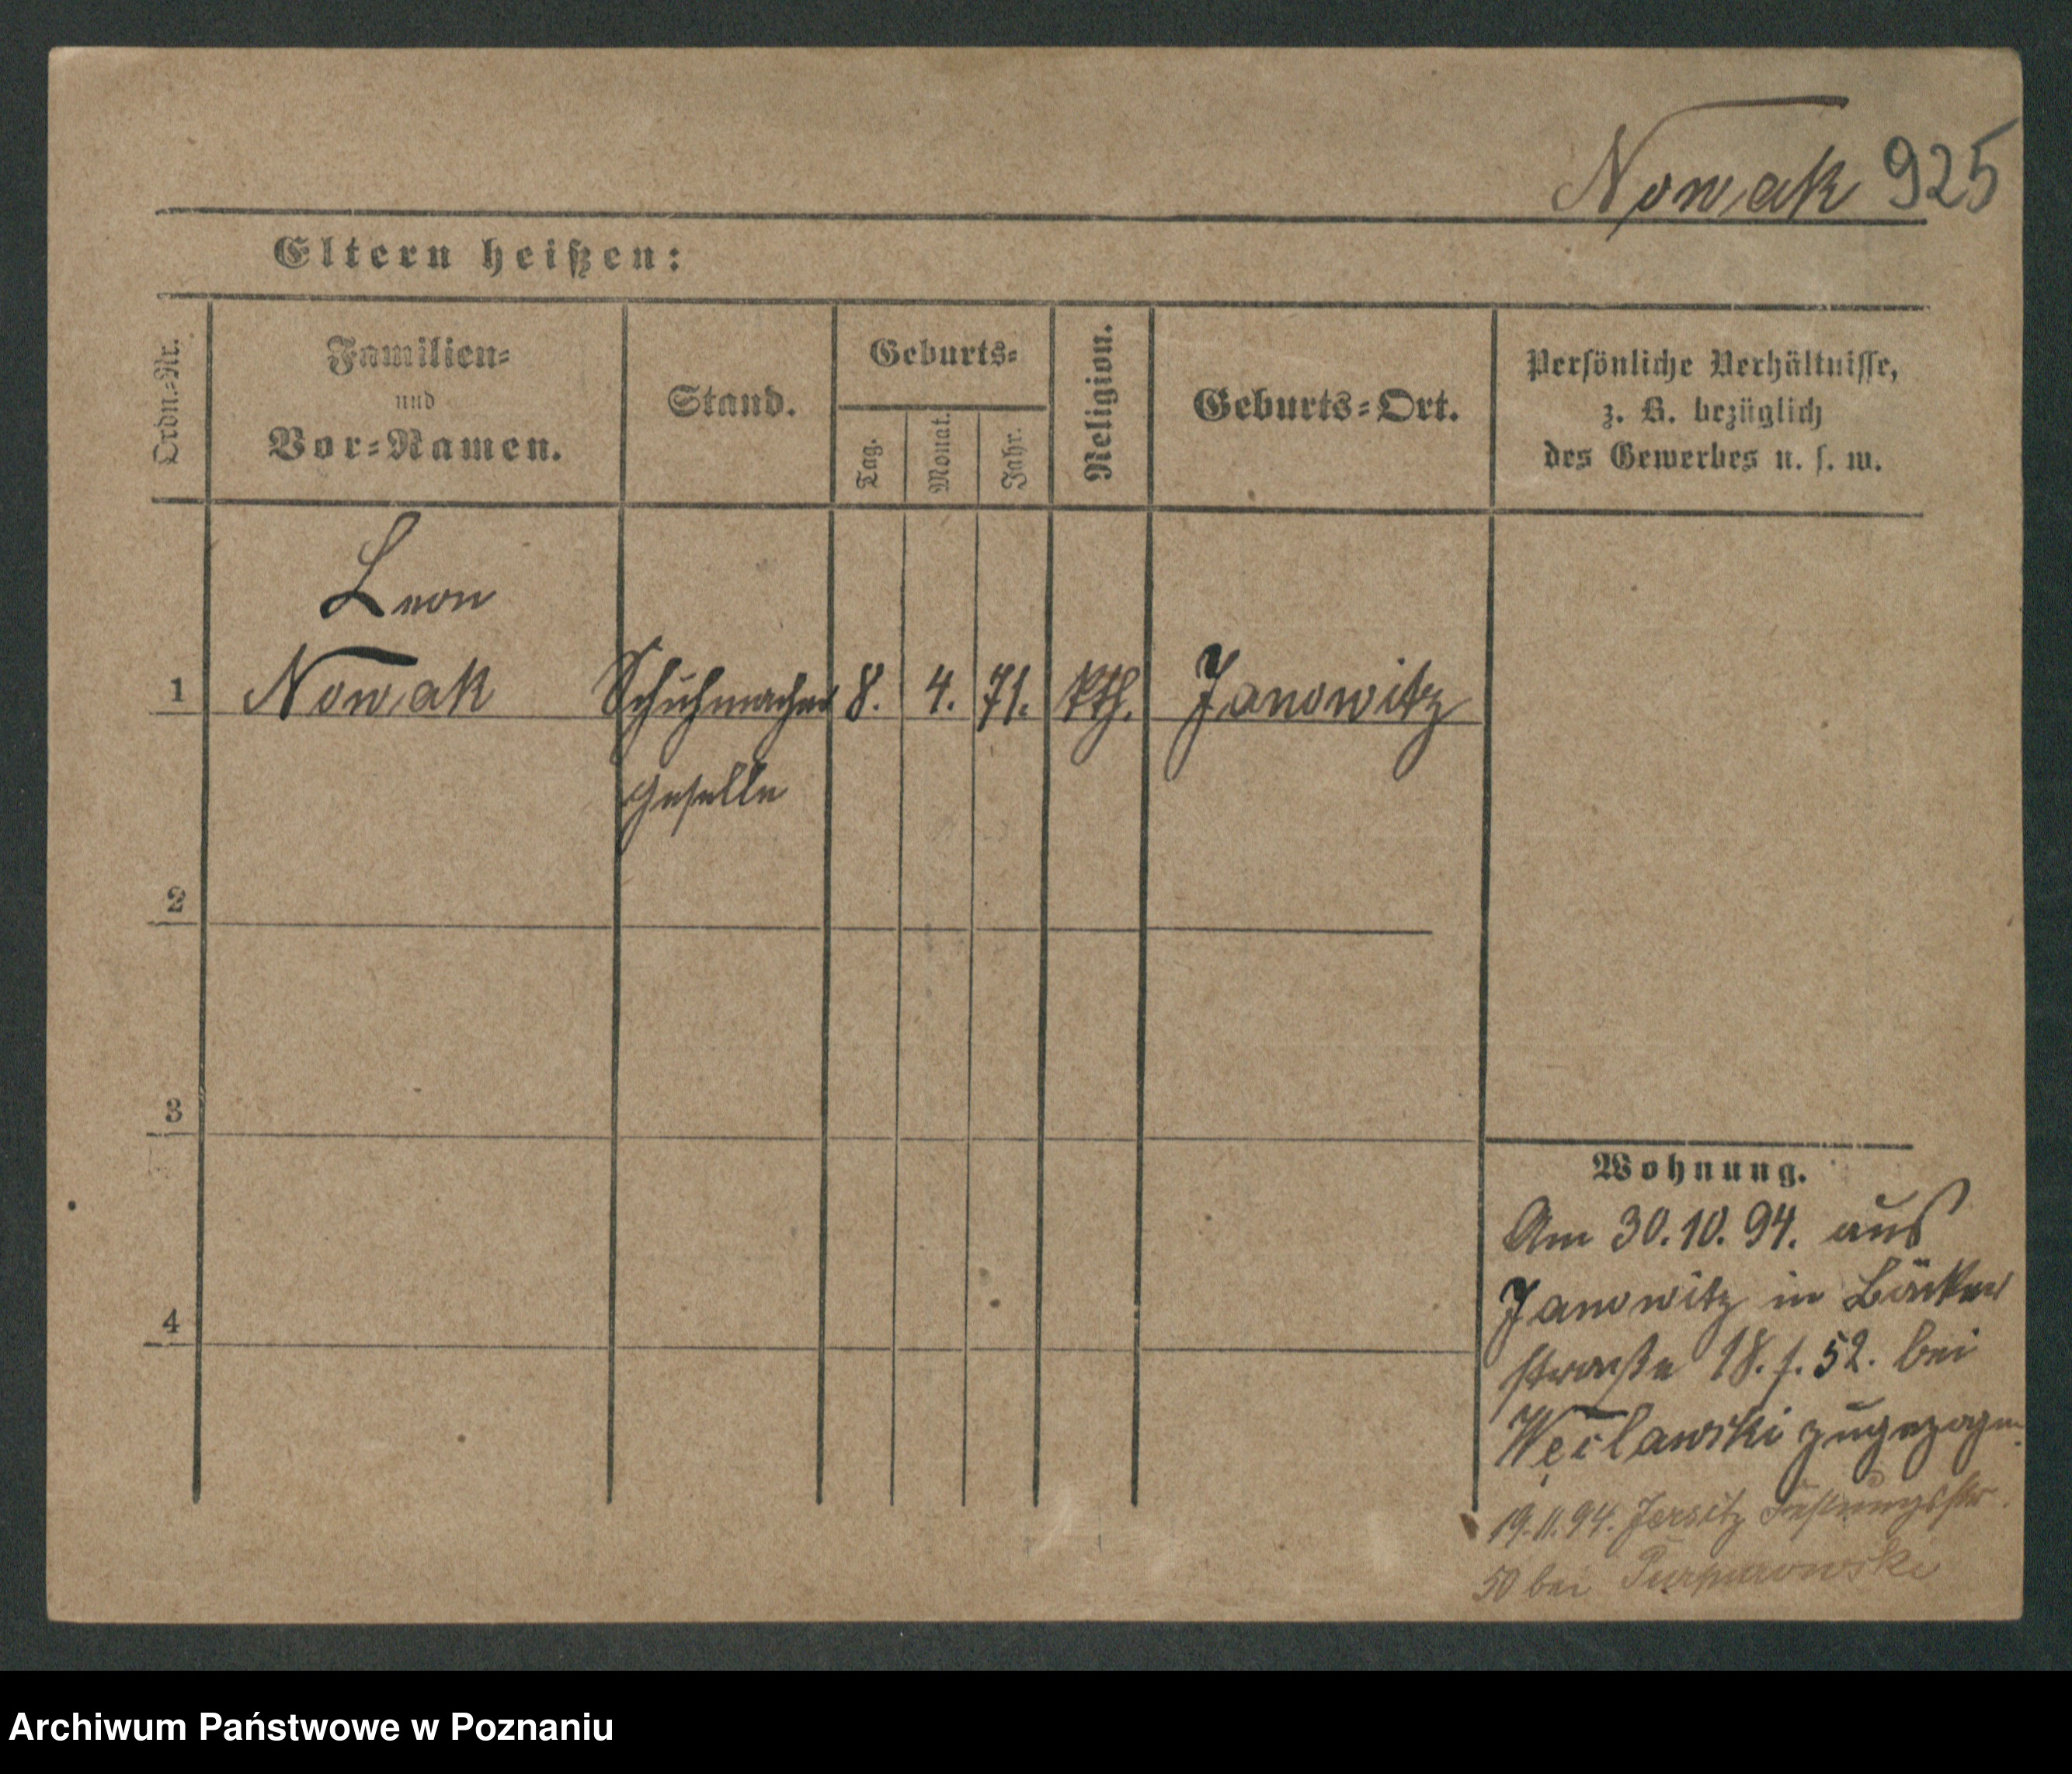 Nowak 925
Eltern heißen:
Ordn.=Nr.
Familien=
und
Vor=Namen.
Stand.
Geburts=
Tag.
Monat.
Jahr.
Religion.
Geburts=Ort.
Persönliche Verhältnisse,
z. B. bezüglich
des Gewerbes u. s. w.
Leon
1 Nowak Schuhmacher 8. 4. 71. kth. Janowitz
geselle
2
3
4
Wohnung.
Am 30.10.94. aus
Janowitz in Bäcker
straße 18. f. 52. bei
Węclawski zugezogen.
19.11.94. Jersitz
50 bei
Archiwum Państwowe w Poznaniu